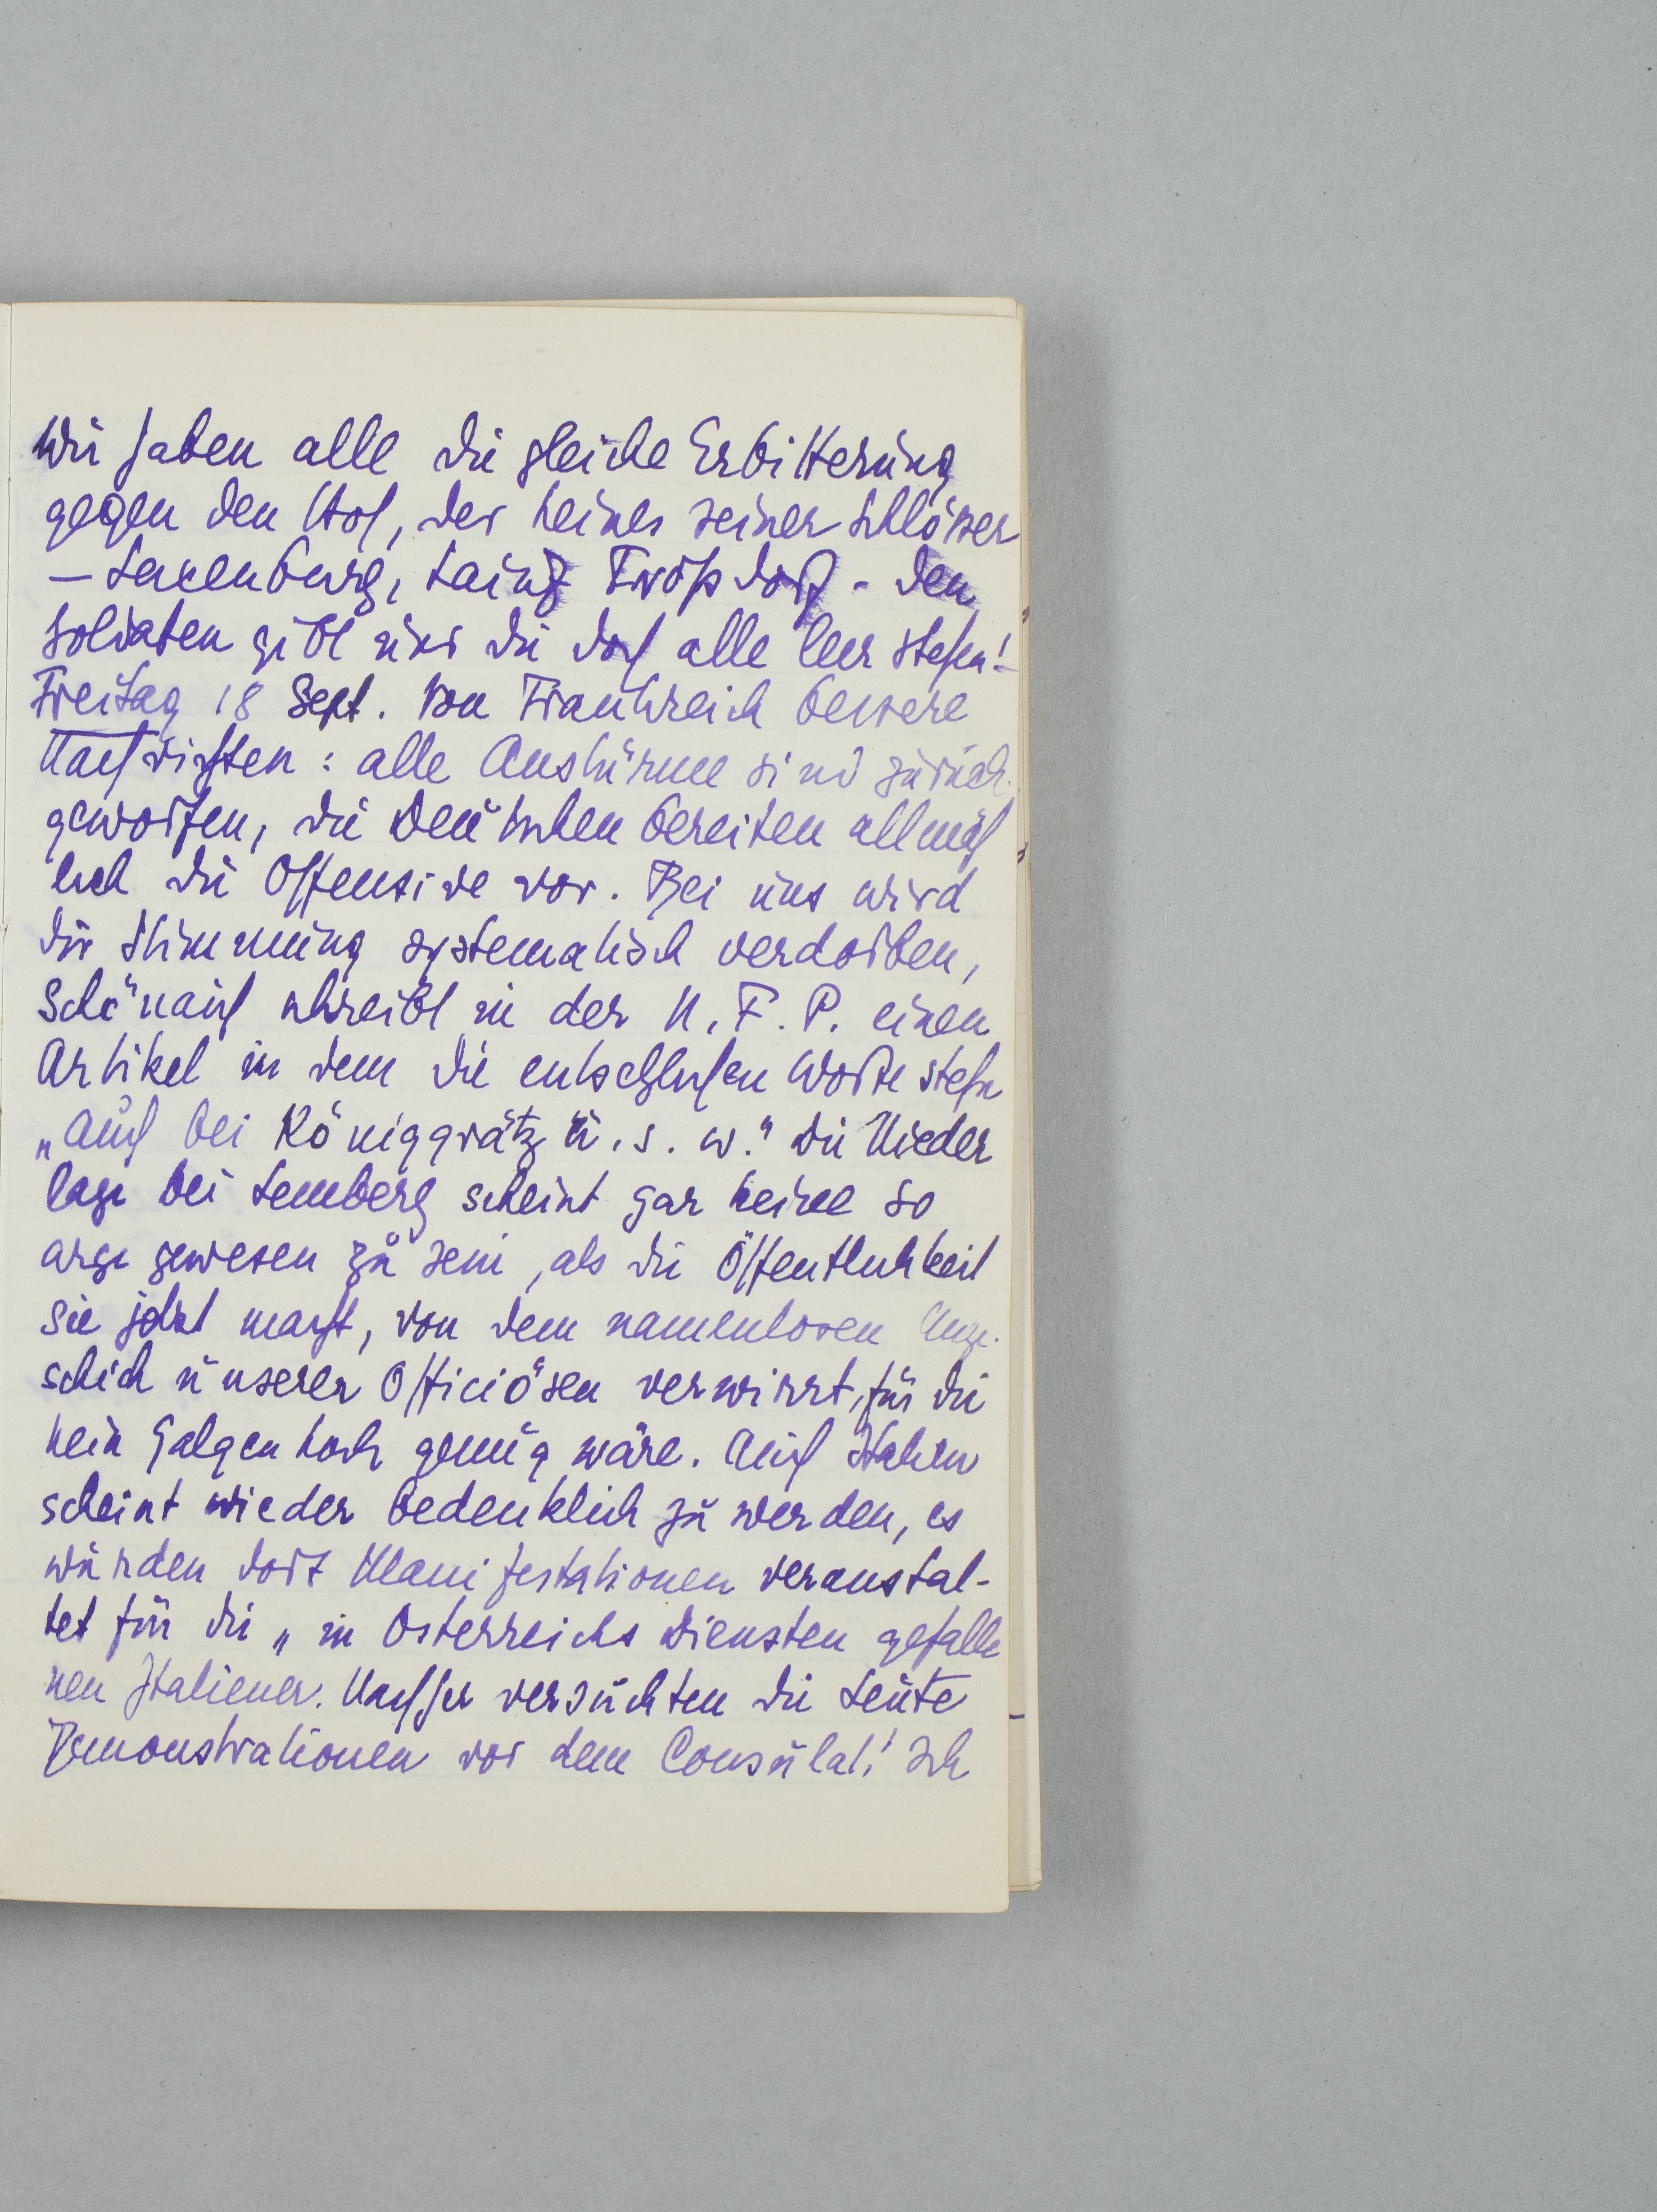 Wir haben alle die gleiche Erbitterung
gegen den Hof, der keines seiner Schlösser
– Laxenburg, Lainz Froßdorf – den
Soldaten gibt und die doch alle leer stehen! –
Freitag 18 Sept. Von Frankreich bessere
Nachrichten: alle Anstürme sind zurück-
geworfen, die Deutschen bereiten allmäh
lich die Offensive vor. Bei uns wird
die Stimmung systematisch verdorben,
Schönaich schreibt in der N. F. P. einen
Artikel in dem die entsetzlichen Worte stehn
„Auch bei Königgrätz u. s. w." Die Nieder
lage bei Lemberg scheint gar keine so
arge gewesen zu sein, als die Öffentlichkeit
sie jetzt macht, von dem namenlosen Unge-
schick unserer Officiösen verwirrt, für die
kein Galgen hoch genug wäre. Auch Italien
scheint wieder bedenklich zu werden, es
wurden dort Manifestationen veranstal-
tet für die „in Österreichs Diensten gefalle
nen Italiener. Nachher versuchten die Leute
Demonstrationen vor dem Consulat! Ich